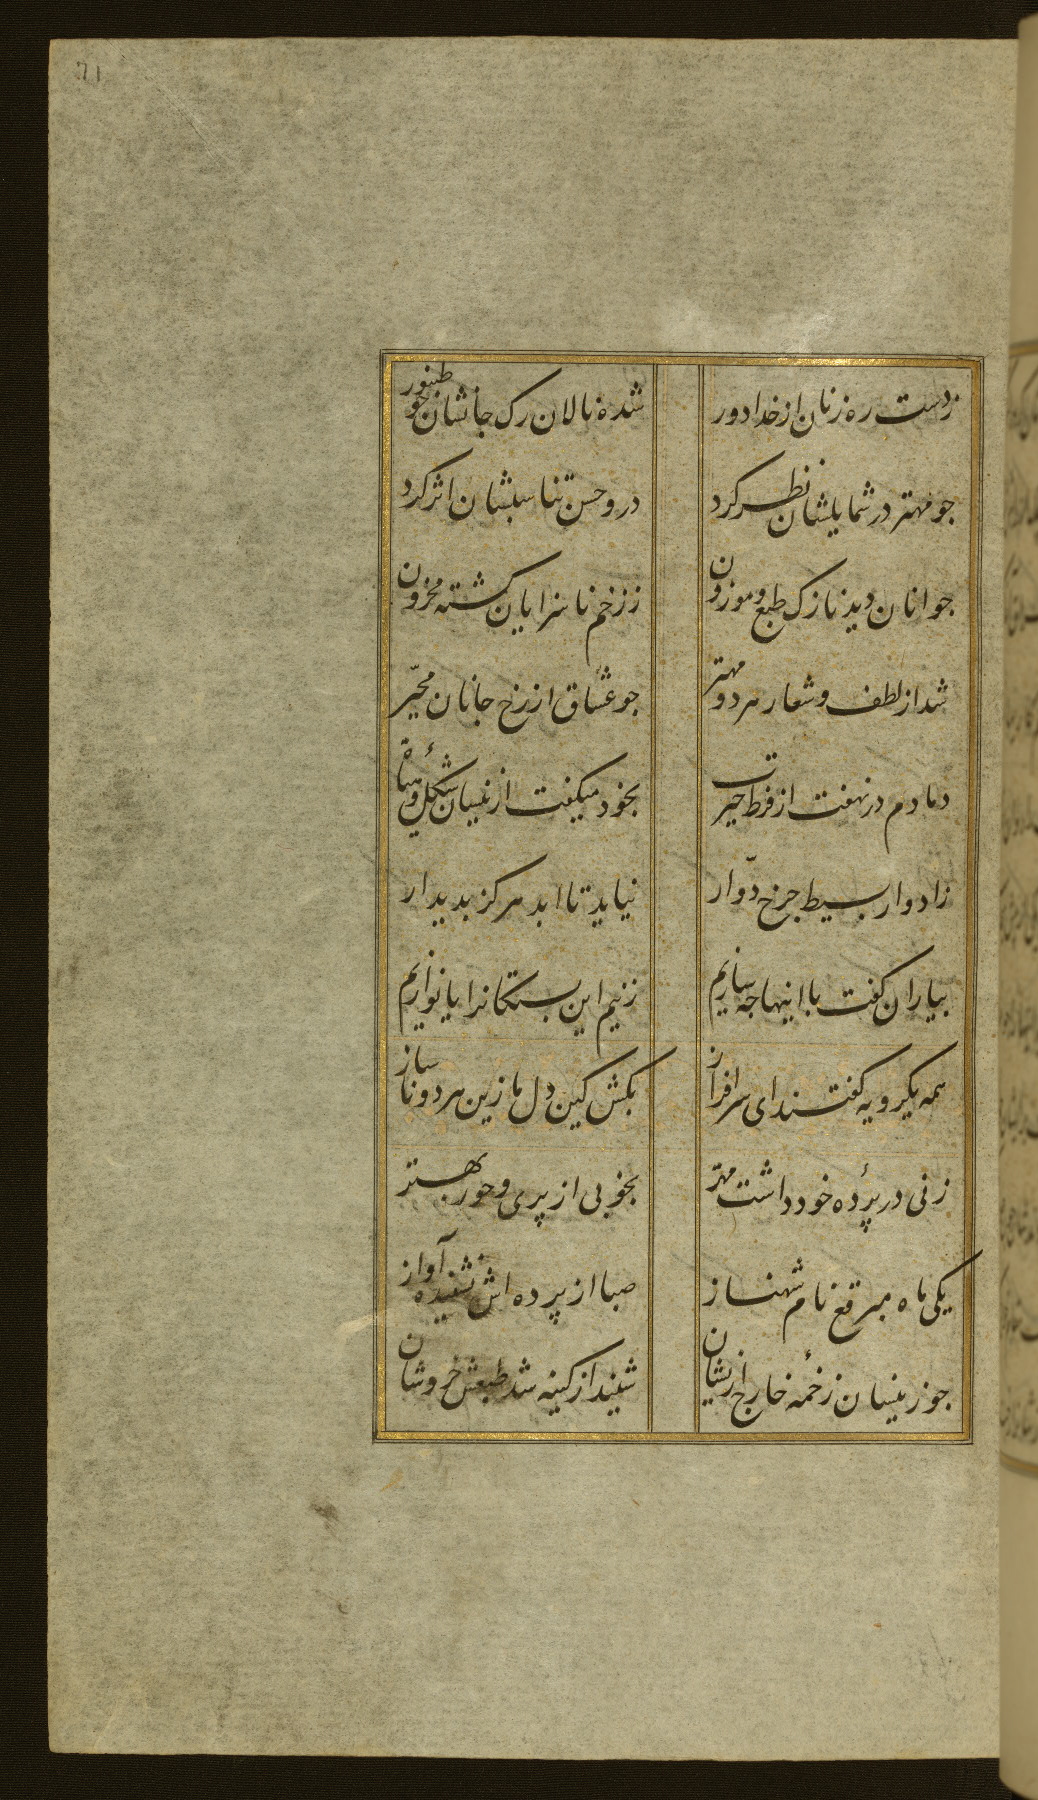 71
زدست ره زنان از خدا دور
شده نالان رک جانشان جو طنبور
جو مهتر در شمایلشان نظر کرد
درو حسن تناسبشان اثر کرد
جوانان دید نازک طبع و موزون
ززخم ناسزایان کشته محزون
شد از لطف و شعار هر دو مهتر
جو عشاق از رخ جانان محیّر
دمادم در نهفت از فرط حیرت
بخود میکفت ازینسان شکل و هیأة
زادوار بسیط جرخ دوّار
نیاید تا ابد هرکز بدیدار
بیاران کفت با اینها جه سازیم
زنیم این بستکانرا یا نوازیم
همه یکرویه کفتند ای سرافراز
بکش کین دل ما زین هر دو ناساز
زنی در پردهٔ خود داشت مهتر
بخوبی از پری و حور بهتر
یکی ماه مبرقع نام شهناز
صبا از پرده اش نشنیده آواز
جو زینسان زخمهٔ خارج ازیشان
شنید از کینه شد طبعش خروشان